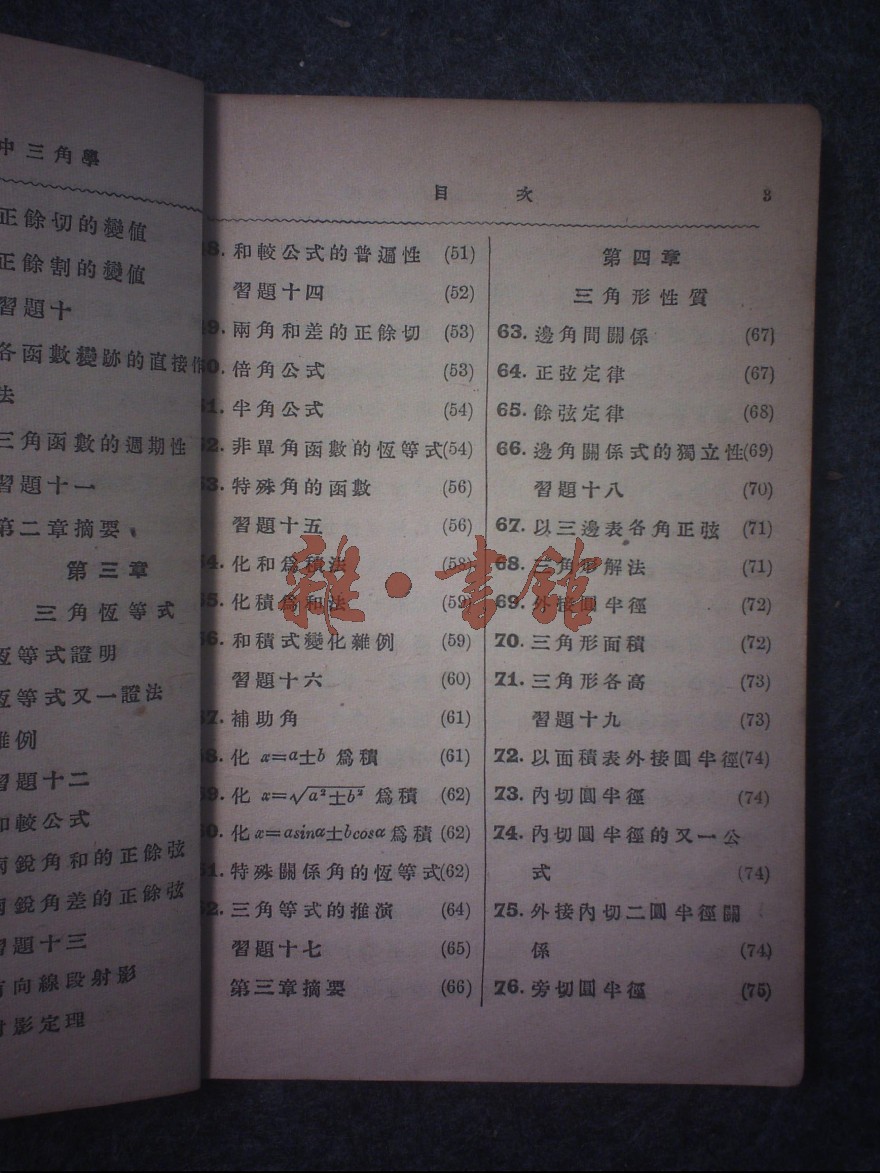 中三角學
正餘切的變值
正餘割的變值
習題十
各函數變跡的直接作
法
三角函數的週期性
習題十一
第二章摘要
第三章
三角恆等式
恆等式證明
恆等式又一證法
雜例
習題十二
和較公式
兩銳角和的正餘弦
兩銳角差的正餘弦
習題十三
有向線段射影
射影定理
目 次 3
8. 和較公式的普遍性 (51)
習題十四 (52)
49. 兩角和差的正餘切 (53)
50. 倍角公式 (53)
51. 半角公式 (54)
52. 非單角函數的恆等式(54)
53. 特殊角的函數 (56)
習題十五 (56)
54. 化和爲積法 (58)
55. 化積爲和法 (59)
56. 和積式變化雜例 (59)
習題十六 (60)
57. 補助角 (61)
58. 化 x=a±b 爲積 (61)
59. 化 x=√a²±b² 爲積 (62)
60. 化x=asinα±bcosα爲積 (62)
61. 特殊關係角的恆等式(62)
62. 三角等式的推演 (64)
習題十七 (65)
第三章摘要 (66)
第四章
三角形性質
63. 邊角間關係 (67)
64. 正弦定律 (67)
65. 餘弦定律 (68)
66. 邊角關係式的獨立性(69)
習題十八 (70)
67. 以三邊表各角正弦 (71)
68. 三角形解法 (71)
69. 外接圓半徑 (72)
70. 三角形面積 (72)
71. 三角形各高 (73)
習題十九 (73)
72. 以面積表外接圓半徑(74)
73. 內切圓半徑 (74)
74. 內切圓半徑的又一公
式 (74)
75. 外接內切二圓半徑關
係 (74)
76. 旁切圓半徑 (75)
雜·書館